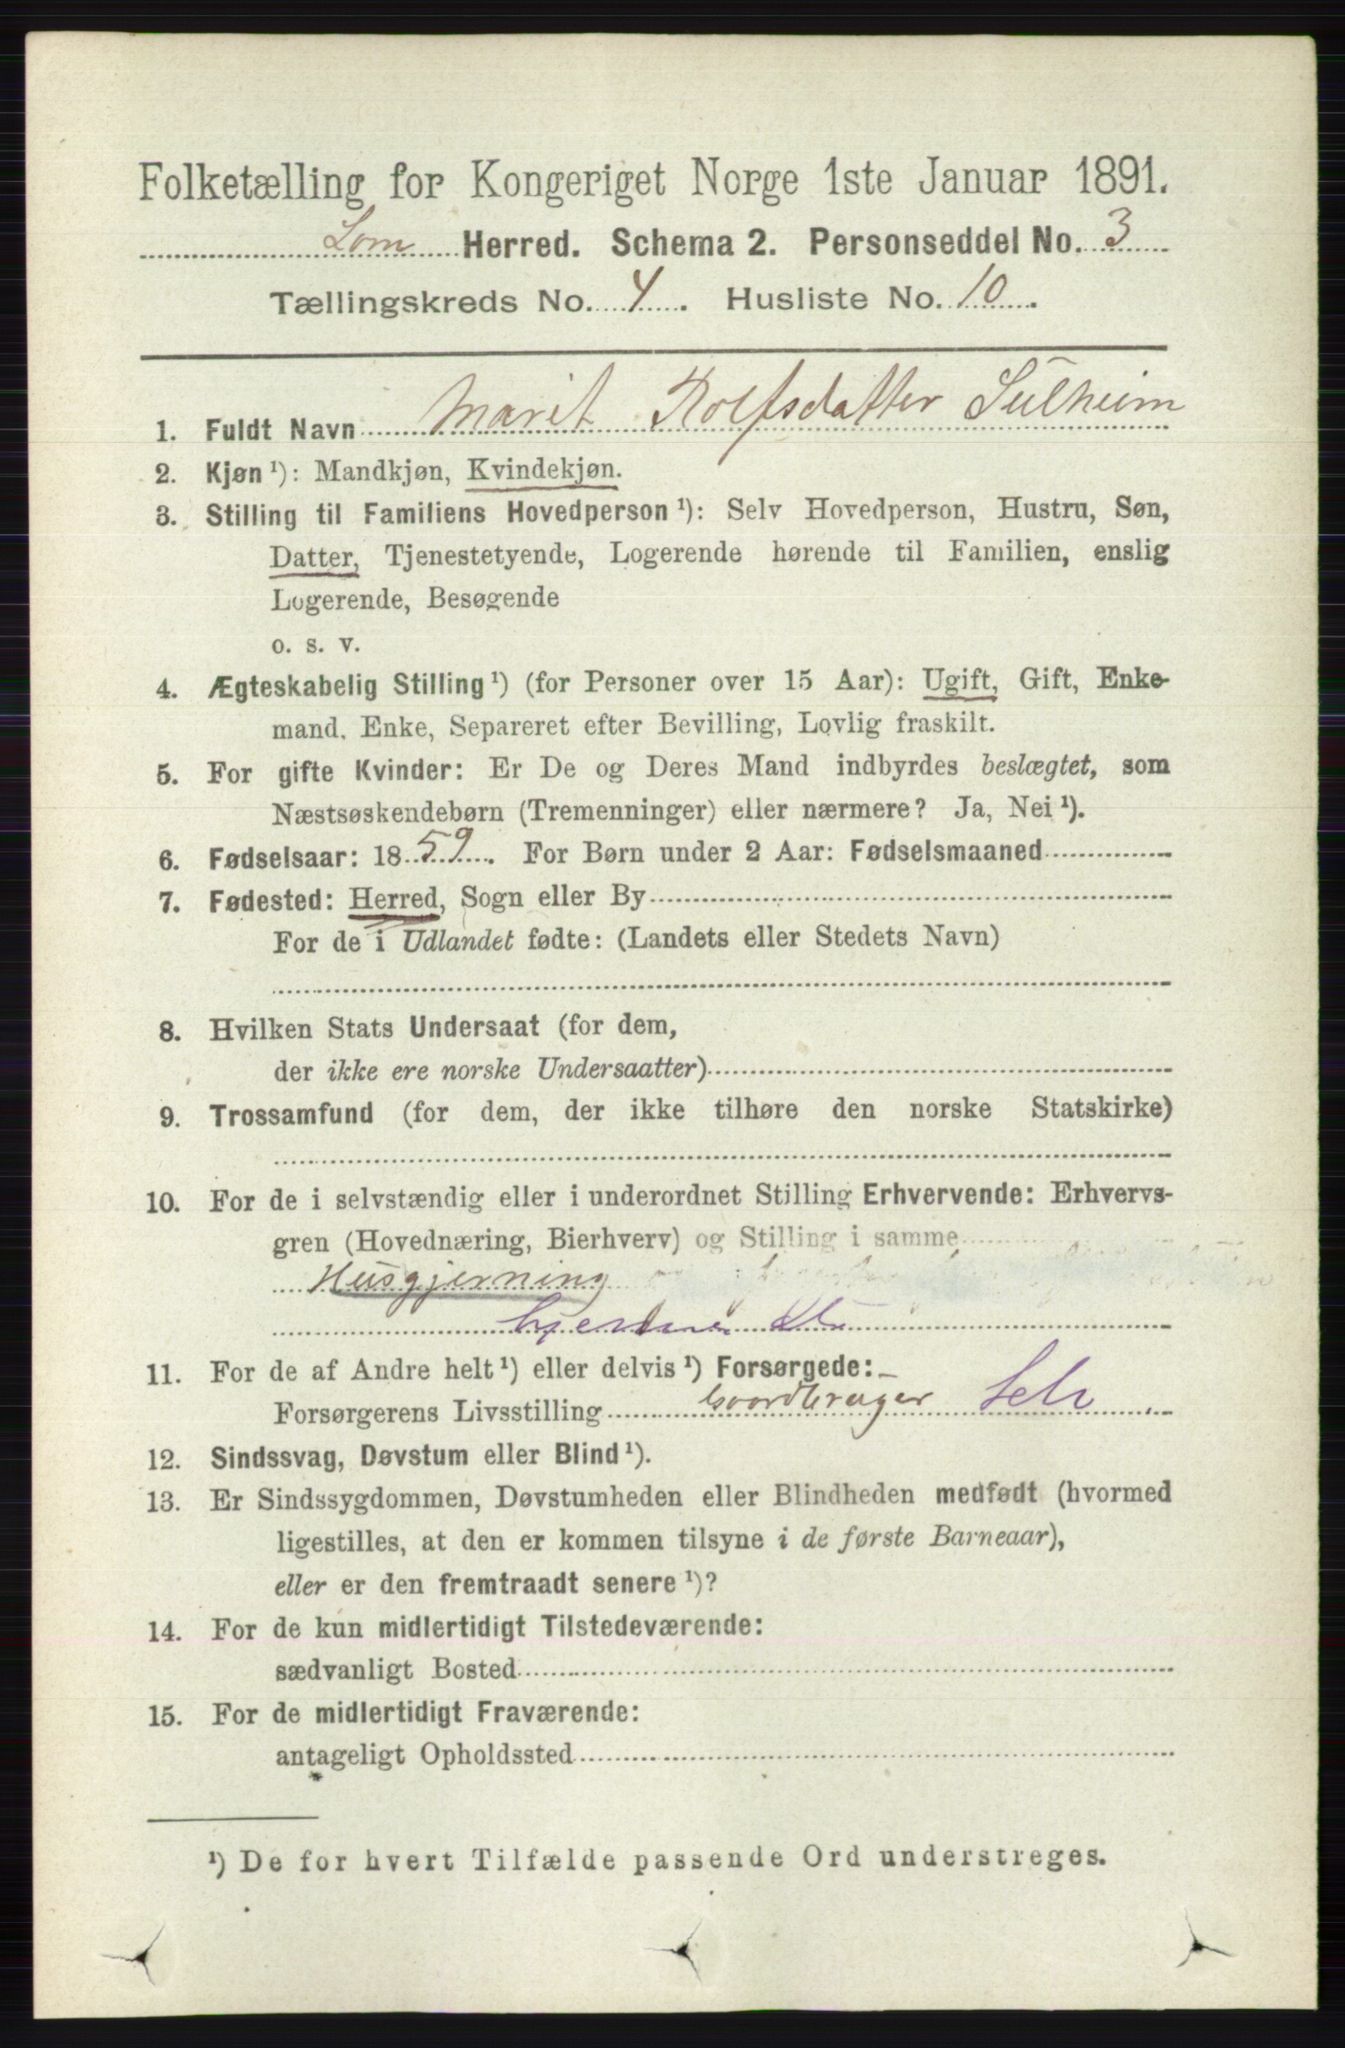 Folketælling for Kongeriget Norge 1ste Januar 1891.
Lom Herred. Schema 2. Personseddel No. 3
Tællingskreds No. 4. Husliste No. 10.
1. Fuldt Navn Marit Rolfsdatter Sulheim
2. Kjøn ¹): Mandkjøn, Kvindekjøn.
3. Stilling til Familiens Hovedperson ¹): Selv Hovedperson, Hustru, Søn,
Datter, Tjenestetyende, Logerende hørende til Familien, enslig
Logerende, Besøgende
o. s. v.
4. Ægteskabelig Stilling ¹) (for Personer over 15 Aar): Ugift, Gift, Enke-
mand, Enke, Separeret efter Bevilling, Lovlig fraskilt.
5. For gifte Kvinder: Er De og Deres Mand indbyrdes beslægtet, som
Næstsøskendebørn (Tremenninger) eller nærmere? Ja, Nei ¹).
6. Fødselsaar: 1859. For Børn under 2 Aar: Fødselsmaaned
7. Fødested: Herred, Sogn eller By
For de i Udlandet fødte: (Landets eller Stedets Navn)
8. Hvilken Stats Undersaat (for dem,
der ikke ere norske Undersaatter)
9. Trossamfund (for dem, der ikke tilhøre den norske Statskirke)
10. For de i selvstændig eller i underordnet Stilling Erhvervende: Erhvervs-
gren (Hovednæring, Bierhverv) og Stilling i samme
Husgjerning
11. For de af Andre helt ¹) eller delvis ¹) Forsørgede:
Forsørgerens Livsstilling Gaardbruger Selv
12. Sindssvag, Døvstum eller Blind ¹).
13. Er Sindssygdommen, Døvstumheden eller Blindheden medfødt (hvormed
ligestilles, at den er kommen tilsyne i de første Barneaar),
eller er den fremtraadt senere ¹)?
14. For de kun midlertidigt Tilstedeværende:
sædvanligt Bosted
15. For de midlertidigt Fraværende:
antageligt Opholdssted
¹) De for hvert Tilfælde passende Ord understreges.